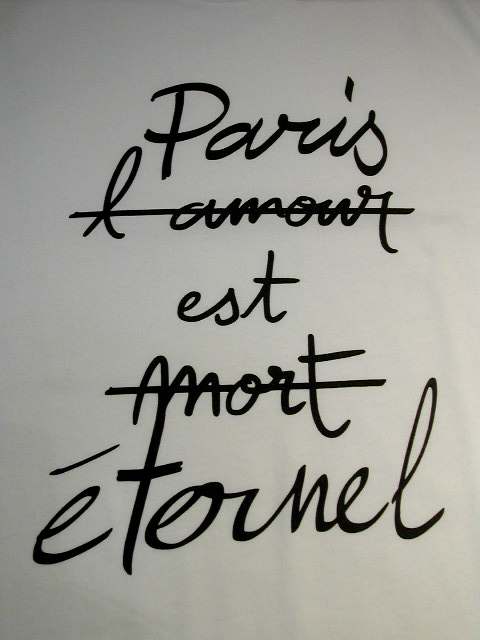 Paris
l'amour
est
mort
éternel